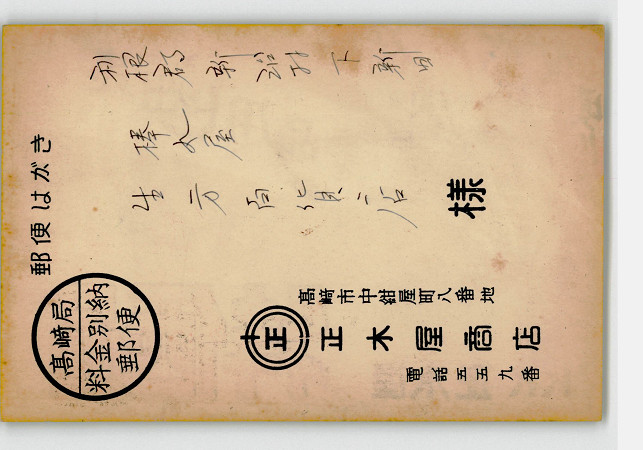 郵便はがき
利根郡新治村下新田
棒丸屋
生方商店 様
高崎局
料金別納
郵便
高崎市中紺屋町八番地
正
正木屋商店
電話五五九番